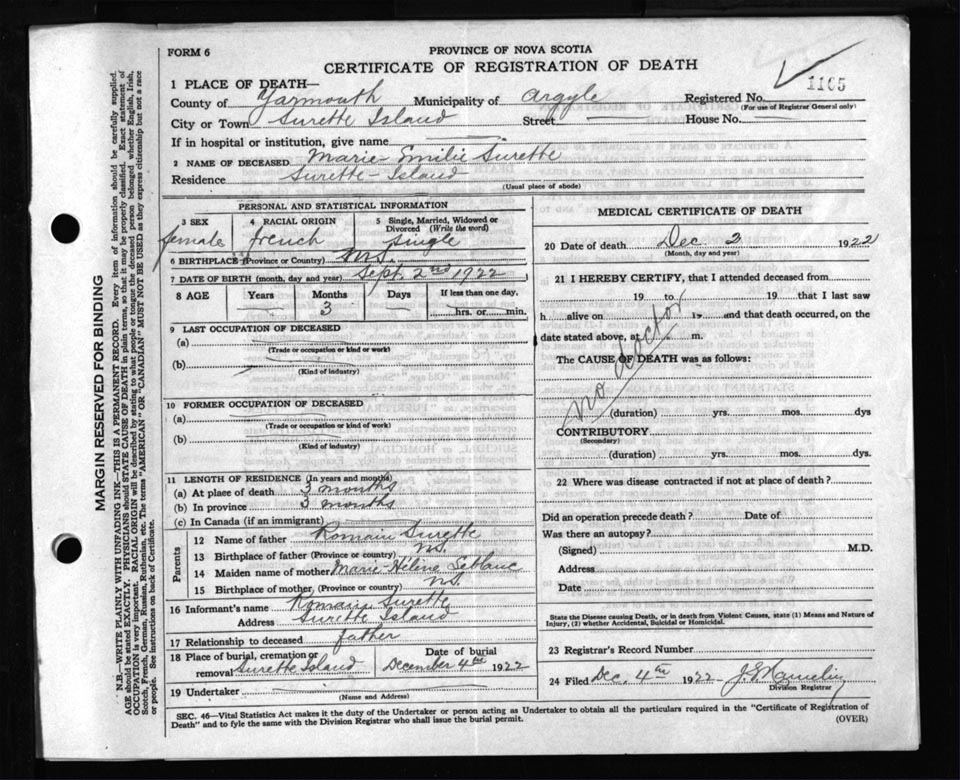 FORM 6
PROVINCE OF NOVA SCOTIA
CERTIFICATE OF REGISTRATION OF DEATH
1165
1 PLACE OF DEATH—
County of Yarmouth Municipality of Argyle Registered No.
(For use of Registrar General only)
City or Town Surette Island Street House No.
If in hospital or institution, give name
2 NAME OF DECEASED Marie Emilie Surette
Residence Surette-Island
(Usual place of abode)
PERSONAL AND STATISTICAL INFORMATION
3 SEX 4 RACIAL ORIGIN 5 Single, Married, Widowed or Divorced (Write the word)
female french single
6 BIRTHPLACE (Province or Country) N.S.
7 DATE OF BIRTH (month, day and year) Sept. 2nd 1922
8 AGE Years Months Days If less than one day,
3 hrs. or min.
9 LAST OCCUPATION OF DECEASED
(a)
(Trade or occupation or kind or work)
(b)
(Kind of industry)
10 FORMER OCCUPATION OF DECEASED
(a)
(Trade or occupation or kind of work)
(b)
(Kind of industry)
11 LENGTH OF RESIDENCE (In years and months)
(a) At place of death 3 months
(b) In province 3 months
(c) In Canada (if an immigrant)
Parents
12 Name of father Romain Surette
13 Birthplace of father (Province or country) N.S.
14 Maiden name of mother Marie-Hélène LeBlanc
15 Birthplace of mother (Province or country) N.S.
16 Informant's name Romain Surette
Address Surette Island
17 Relationship to deceased father
18 Place of burial, cremation or removal Surette Island Date of burial December 4th 1922
19 Undertaker
(Name and Address)
MEDICAL CERTIFICATE OF DEATH
20 Date of death Dec. 2 1922
(Month, day and year)
21 I HEREBY CERTIFY, that I attended deceased from
19 to 19 that I last saw
h alive on 19 and that death occurred, on the
date stated above, at m.
The CAUSE OF DEATH was as follows:
no doctor
(duration) yrs. mos. dys
CONTRIBUTORY
(Secondary)
(duration) yrs. mos. dys.
22 Where was disease contracted if not at place of death?
Did an operation precede death? Date of
Was there an autopsy?
(Signed) M.D.
Address
Date
State the Disease causing Death, or in death from Violent Causes, state (1) Means and Nature of
Injury, (2) whether Accidental, Suicidal or Homicidal.
23 Registrar's Record Number
24 Filed Dec. 4th 1922
Division Registrar
SEC. 46—Vital Statistics Act makes it the duty of the Undertaker or person acting as Undertaker to obtain all the particulars required in the "Certificate of Registration of
Death" and to fyle the same with the Division Registrar who shall issue the burial permit.
(OVER)
MARGIN RESERVED FOR BINDING
N.B.—WRITE PLAINLY WITH UNFADING INK—THIS IS A PERMANENT RECORD. Every item of information should be carefully supplied.
AGE should be stated EXACTLY. PHYSICIANS should STATE CAUSE OF DEATH in plain terms, so that it may be properly classified. Exact statement of
OCCUPATION is very important. RACIAL ORIGIN will be described by stating to what people or tongue the deceased person belonged whether English, Irish,
Scotch, French, German, Russian, Ruthenian, etc. The terms "AMERICAN" OR "CANADIAN" MUST NOT BE USED as they express citizenship but not a race
or people. See instructions on back of Certificate.